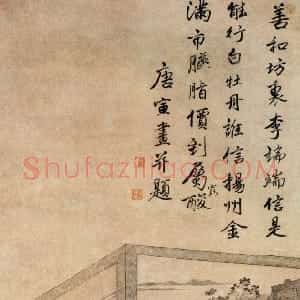 善和坊裏李端端信是
能行白牡丹誰信揚州金
滿市臙脂價到屬酸
唐寅畫并題
Shufaziliao.COM